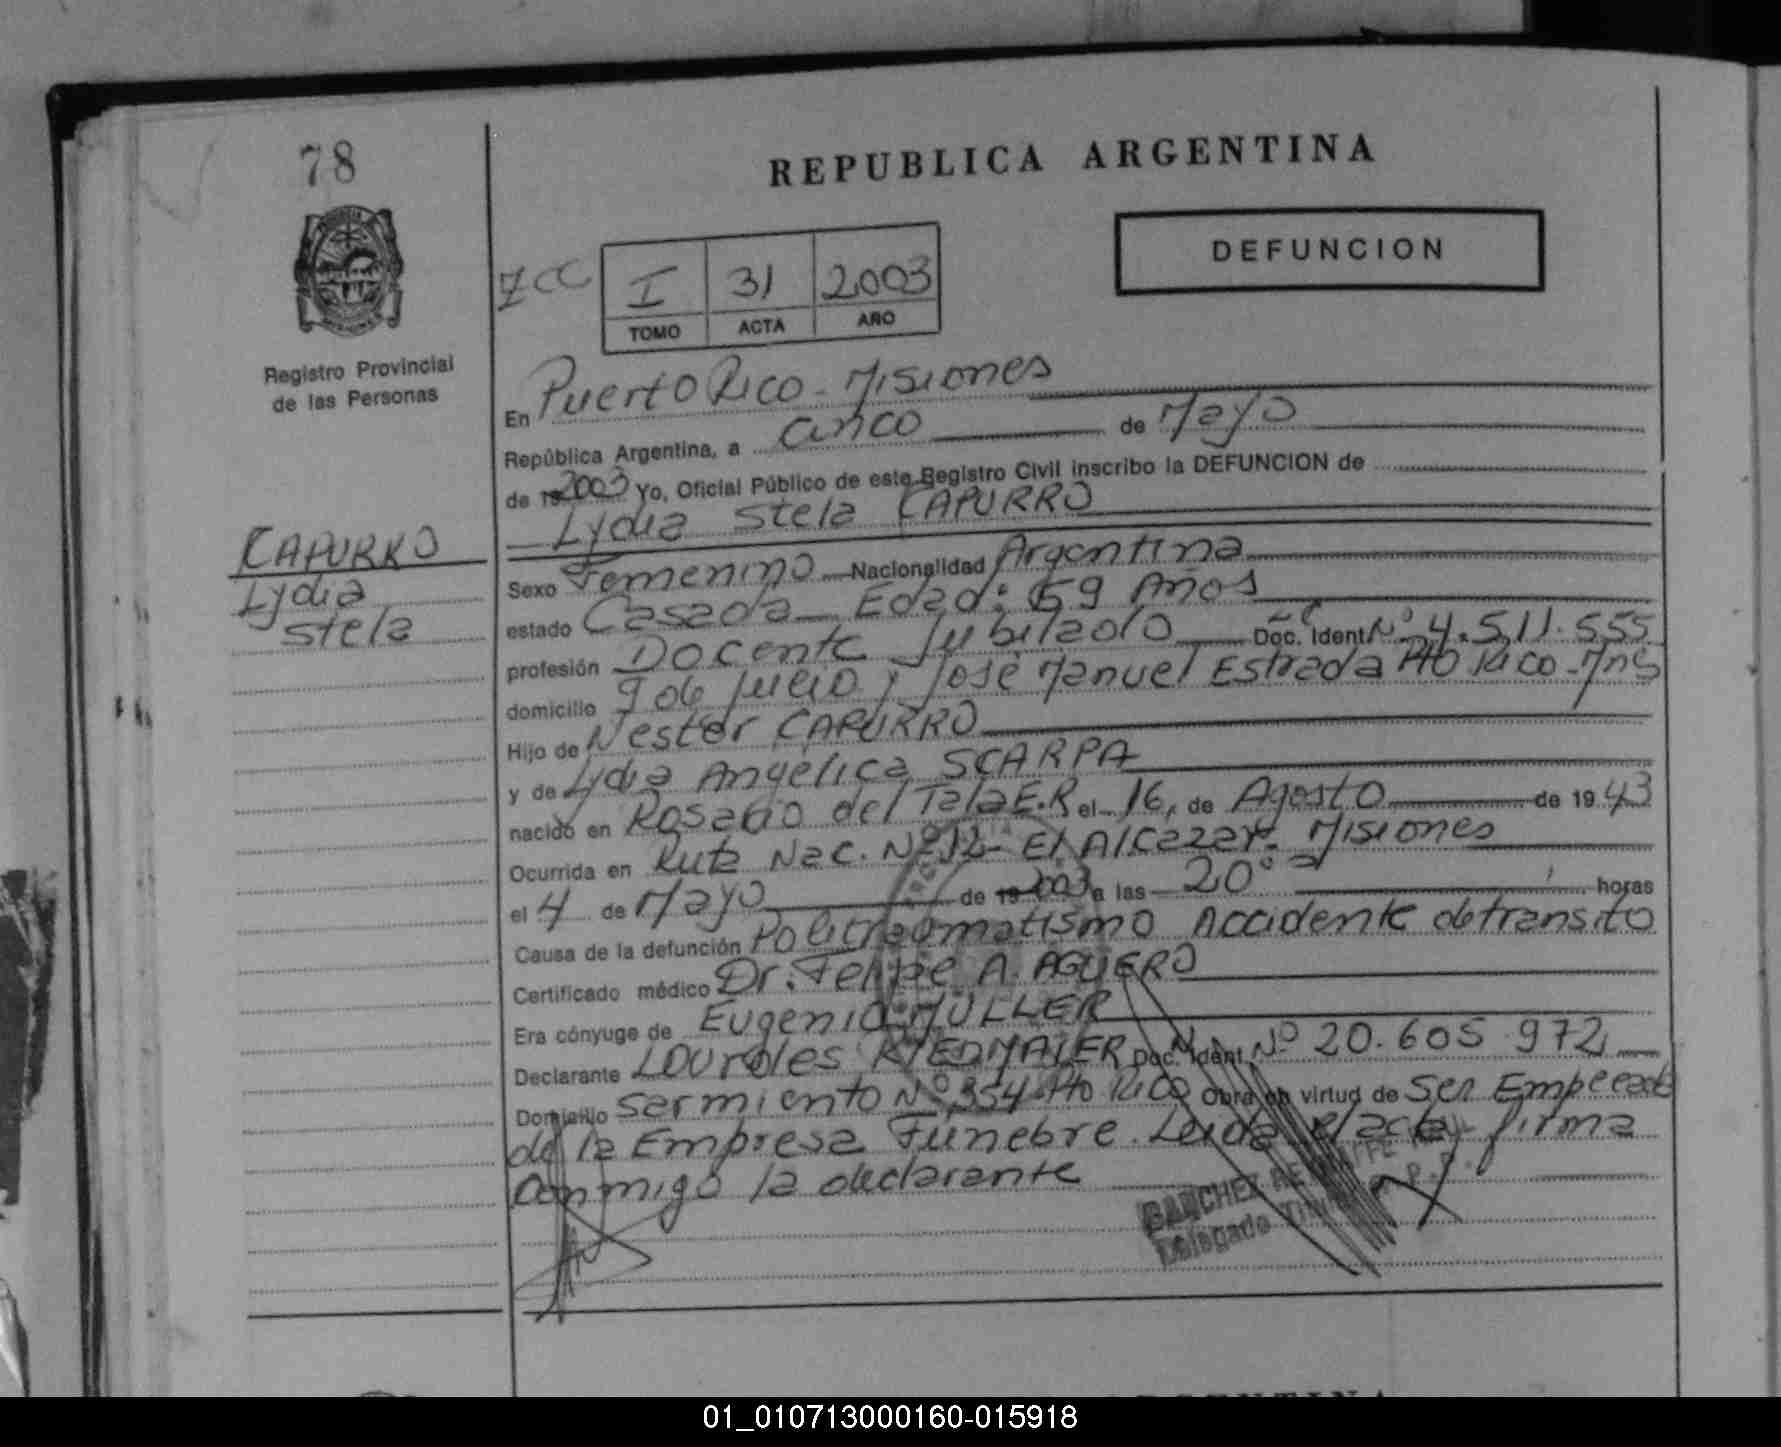 78
REPUBLICA ARGENTINA
DEFUNCION
I 31 2003
TOMO ACTA AÑO
Registro Provincial
de las Personas
En Puerto Rico - Misiones
República Argentina, a cinco de Mayo
de 19 2003 Yo, Oficial Público de este Registro Civil inscribo la DEFUNCION de
Lydia Stela CAPURRO
CAPURRO
Lydia
Stela
Sexo Femenino Nacionalidad Argentina
estado Casada Edad: 59 Años
profesión Docente Jubilado Doc. Ident Nº 4.511.555
domicilio 9 de Julio y José Manuel Estrada Pto Rico - Mnes
Hijo de Nestor CAPURRO
y de Lydia Angélica SCARPA
nacido en Rosario del Tala E.R el 16, de Agosto de 19 43
Ocurrida en Ruta Nac. Nº 12 - El Alcazar - Misiones
el 4 de Mayo de 19 2003 a las 20º horas
Causa de la defunción Politraumatismo Accidente de transito
Certificado médico Dr. Felipe A. AGUERO
Era cónyuge de Eugenio MÜLLER
Declarante Lourdes RIEDMAIER Doc. Ident. Nº 20.605.972
Domicilio Sarmiento Nº 354 Pto Rico Obra en virtud de Ser Empleada
de la Empresa Fúnebre. Leida el acta firma
conmigo la declarante
Delegada
ARGENTINA
01_010713000160-015918